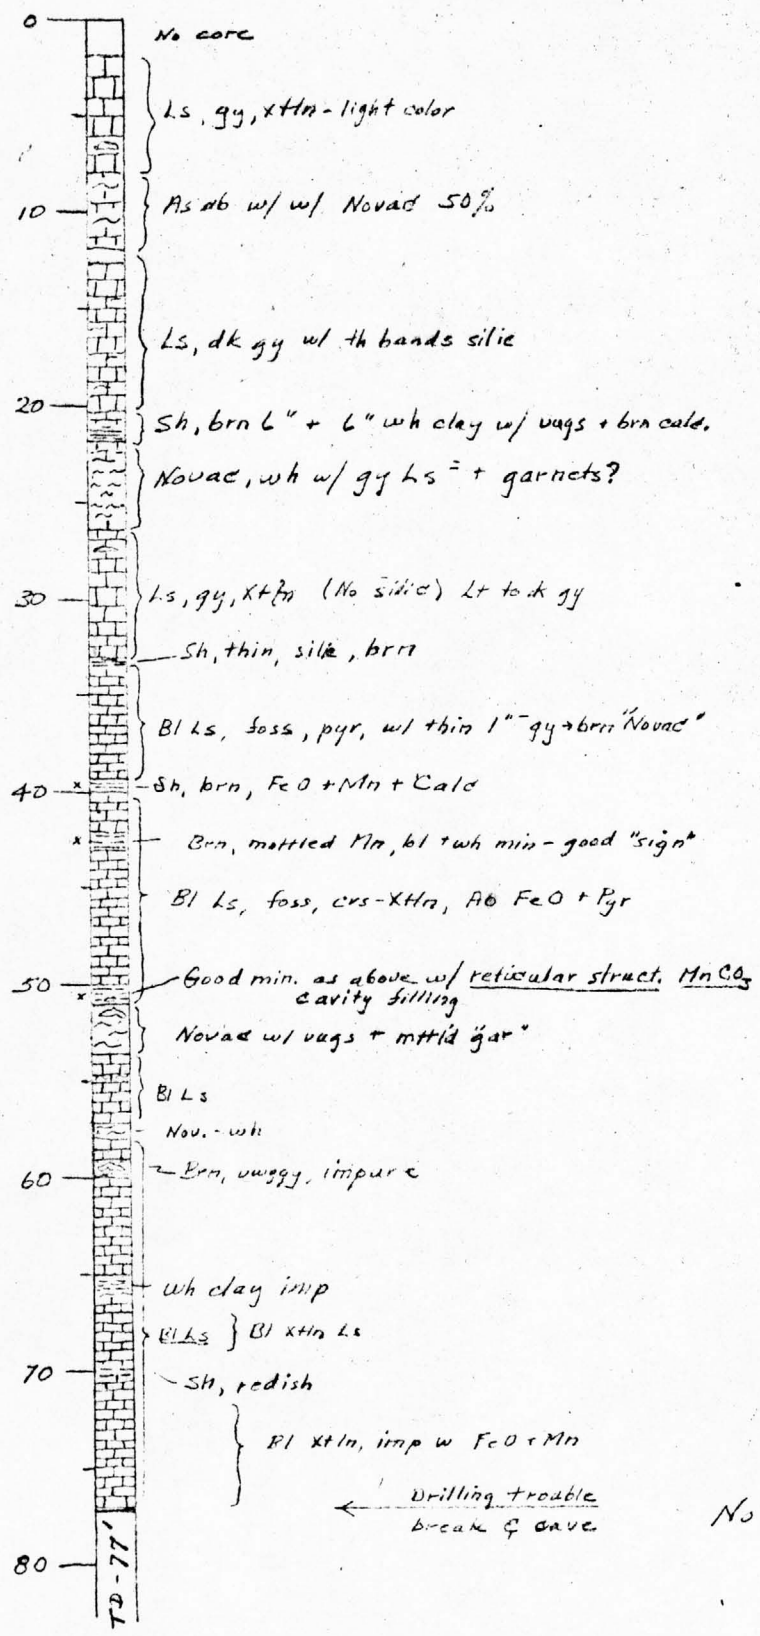 0
No core
Ls, gy, xtln - light color
10
As ab w/ w/ Novac 50%
Ls, dk gy w/ th bands silic
20
Sh, brn 6" + 6" wh clay w/ vugs + brn calc.
Novac, wh w/ gy Ls = + garnets?
30
Ls, gy, xtln (No silic) Lt to dk gy
Sh, thin, silic, brn
Bl Ls, foss, pyr, w/ thin 1"- gy→brn "Novac"
x
40
Sh, brn, FeO + Mn + Calc
x
Brn, mottled Mn, bl + wh min - good "sign"
Bl Ls, foss, crs-xtln, Ab FeO + Pyr
50
x
Good min. as above w/ reticular struct. MnCO3
cavity filling
Novac w/ vugs + mttl'd "gar"
Bl Ls
Nov. - wh
60
Brn, vuggy, impure
Wh clay imp
Bl Ls } Bl xtln Ls
70
Sh, redish
Bl xtln, imp w FeO + Mn
Drilling trouble
break & cave
No
80
TD-77'